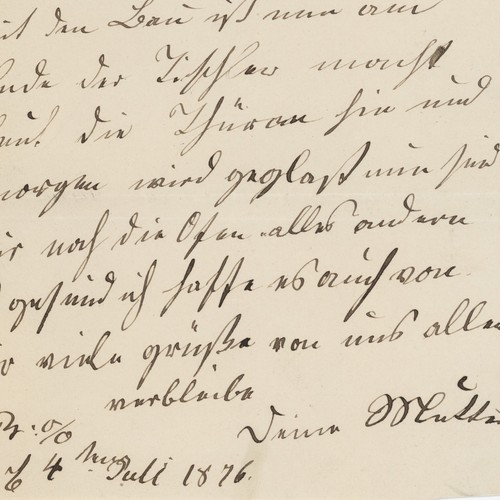 mit den Bau ist nun am
Ende der Tischler macht
heut die Thüren hin und
morgen wird geglast nun sind
wir noch die Ofen alles andern
gesund ich hoffe es auch von
Dir viele grüße von uns allen
verbleibe
Deine Mutter
4 ten Juli 1876.